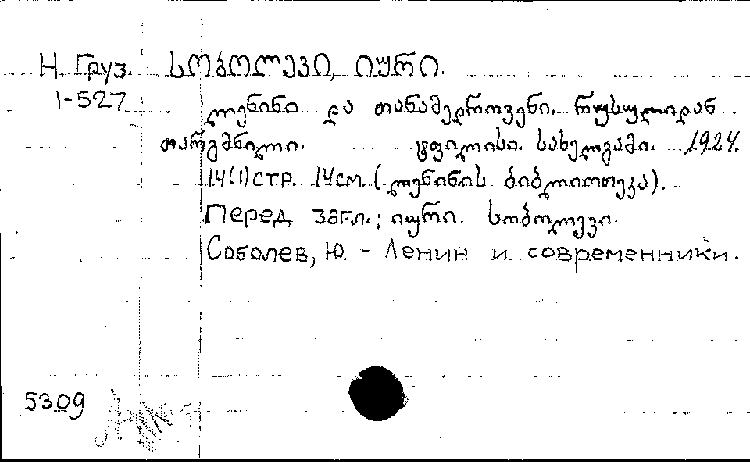 Н. Груз. სობოლევი, იური.
1-527
ლენინი და თანამედროვენი. რუსულიდან
თარგმნილი. ტფილისი. სახელგამი. 1924.
14(1)стр. 14см. (ლენინის ბიბლიოთეკა).
Перед загл.: იური სობოლევი.
Соболев, Ю. - Ленин и современники.
5309